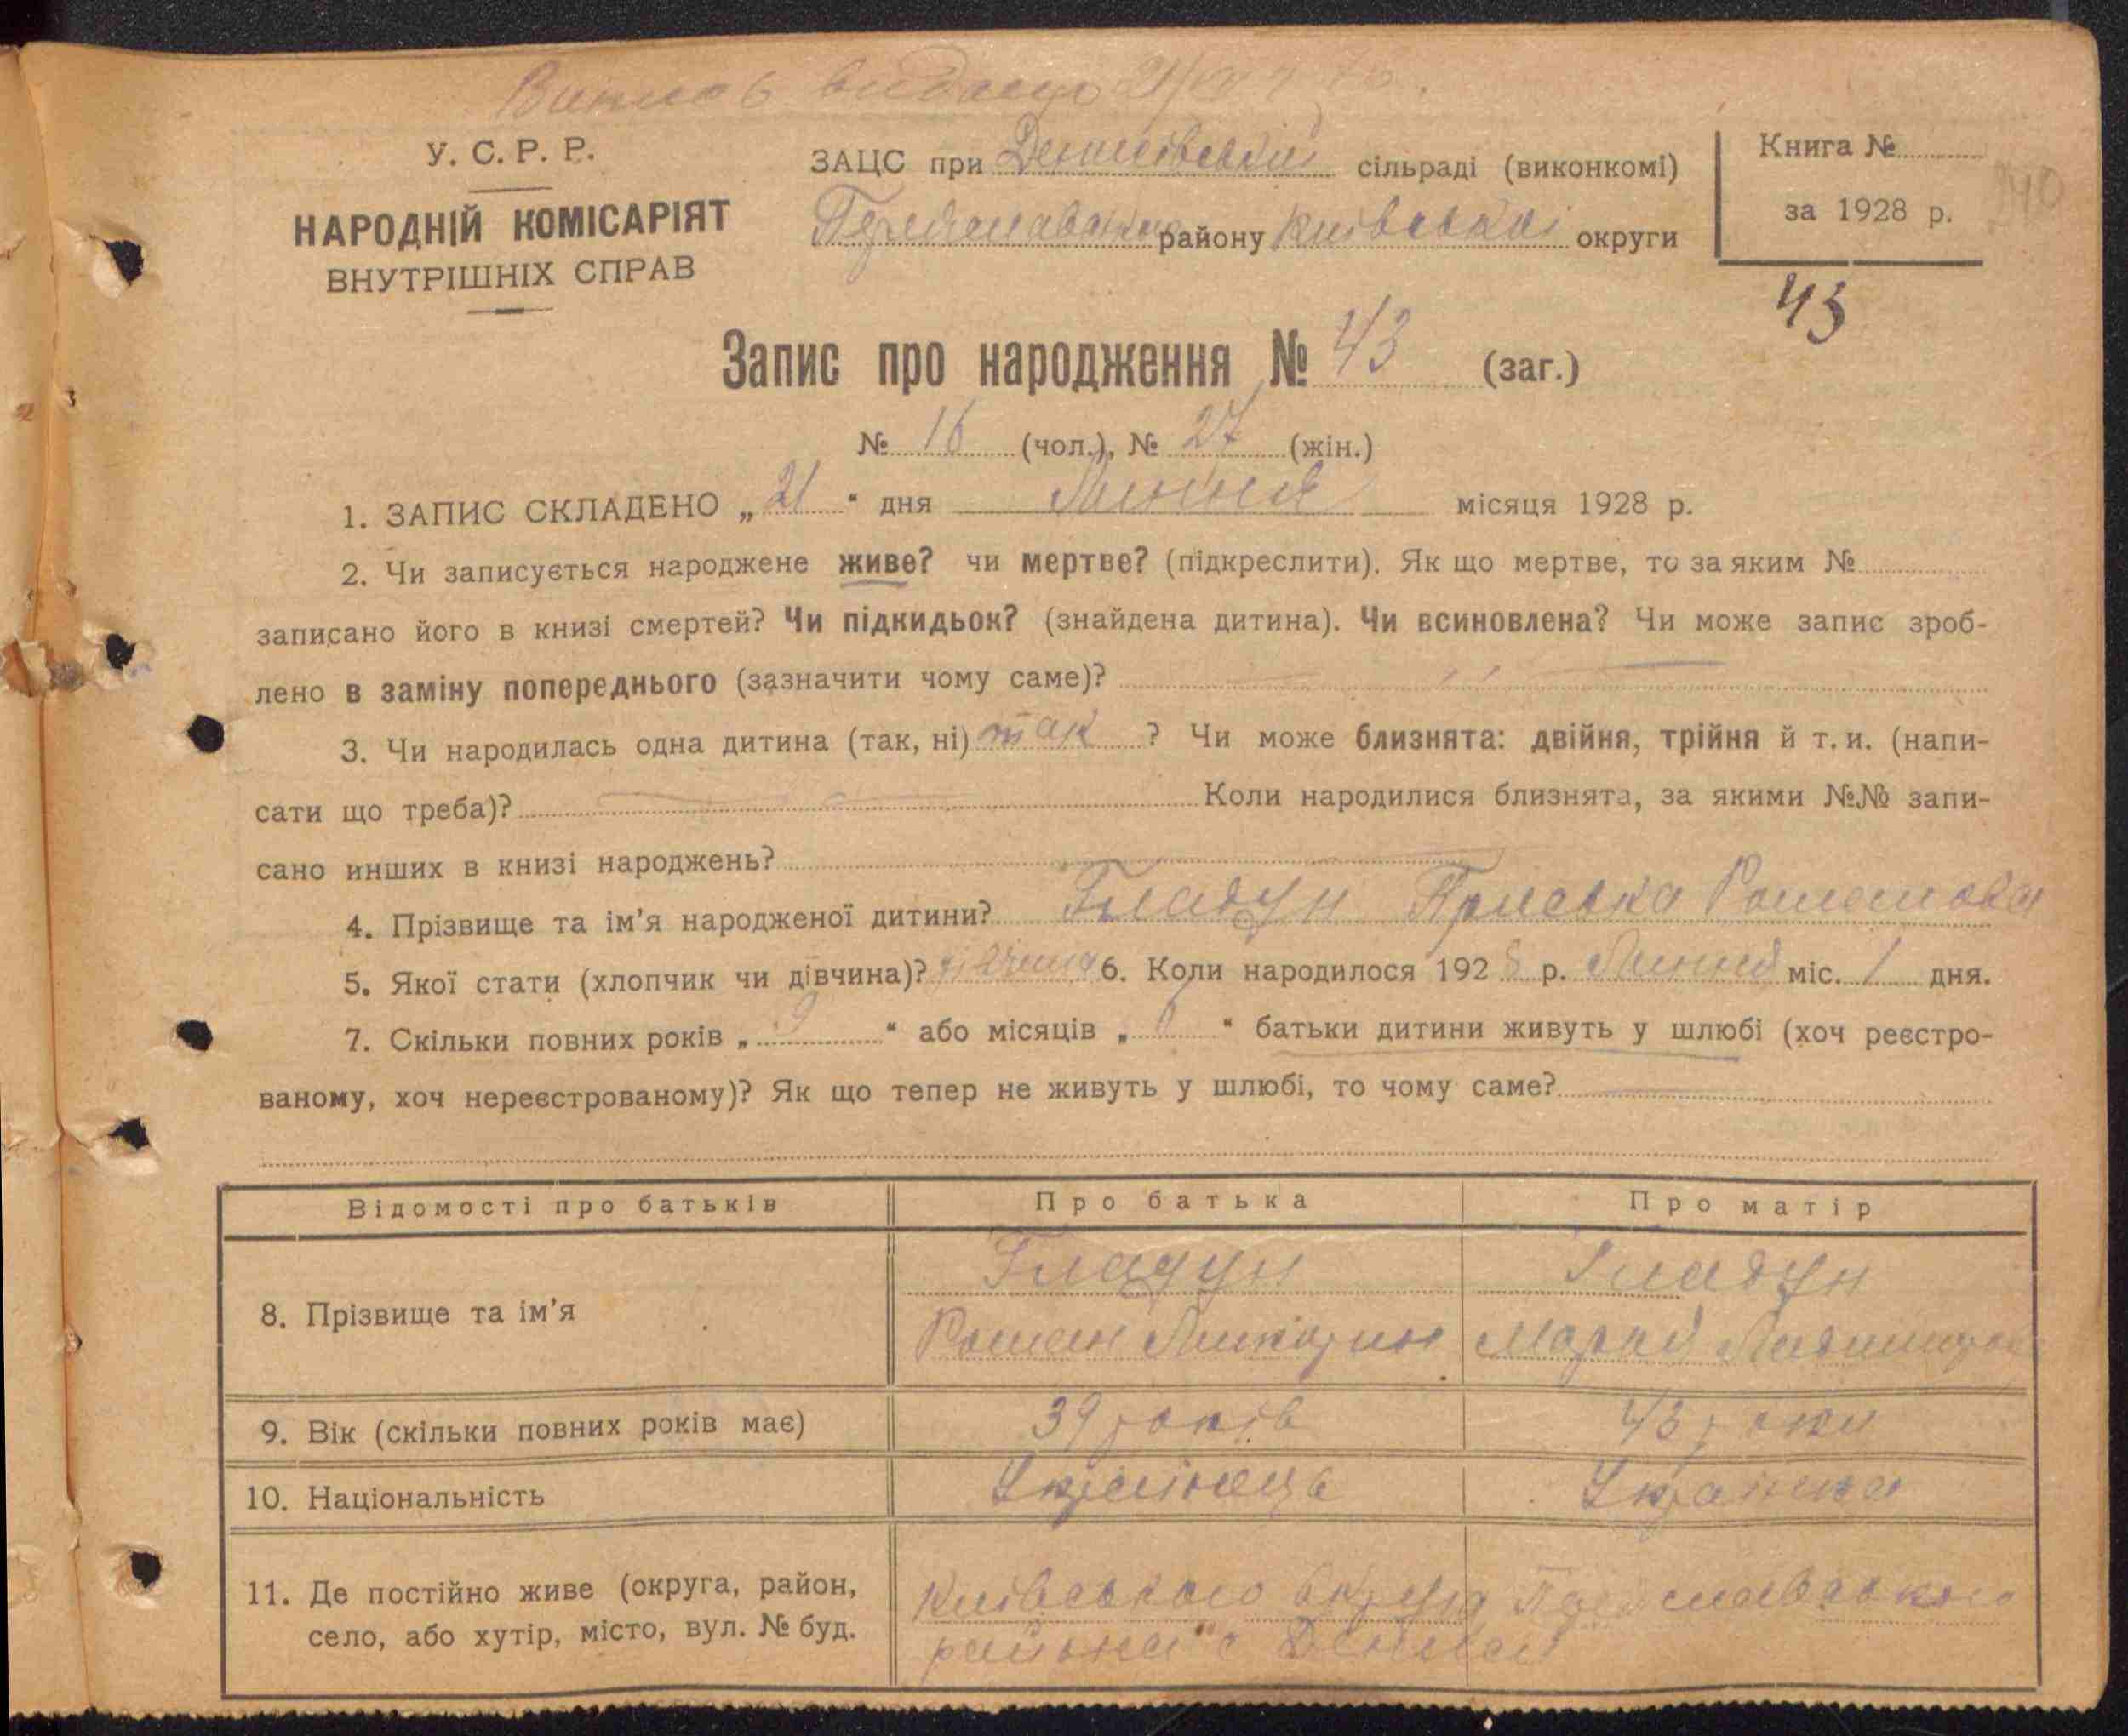 У. С. Р. Р.
НАРОДНІЙ КОМІСАРІЯТ
ВНУТРІШНІХ СПРАВ
ЗАЦС при Деньгівській сільраді (виконкомі)
району Київської округи
Книга №
за 1928 р.
43
Запис про народження № 43 (заг.)
№ 16 (чол.), № 27 (жін.)
1. ЗАПИС СКЛАДЕНО „ 21 “ дня Липня місяця 1928 р.
2. Чи записується народжене живе? чи мертве? (підкреслити). Як що мертве, то за яким №
записано його в книзі смертей? Чи підкидьок? (знайдена дитина). Чи всиновлена? Чи може запис зроб-
лено в заміну попереднього (зазначити чому саме)?
3. Чи народилась одна дитина (так, ні) так ? Чи може близнята: двійня, трійня й т. и. (напи-
сати що треба)? Коли народилися близнята, за якими №№ запи-
сано инших в книзі народжень?
4. Прізвище та ім’я народженої дитини? Гладун Приська Романова
5. Якої стати (хлопчик чи дівчина)? дівчина 6. Коли народилося 192 8 р. Липня міс. 1 дня.
7. Скільки повних років „ 9 “ або місяців „ “ батьки дитини живуть у шлюбі (хоч реєстро-
ваному, хоч нереєстрованому)? Як що тепер не живуть у шлюбі, то чому саме?
Відомості про батьків Про батька Про матір
8. Прізвище та ім’я
Гладун Гладун
Роман Мария
9. Вік (скільки повних років має) 39 років 43 роки
10. Національність Українець Українка
11. Де постійно живе (округа, район,
село, або хутір, місто, вул. № буд.
Київського округа
района с